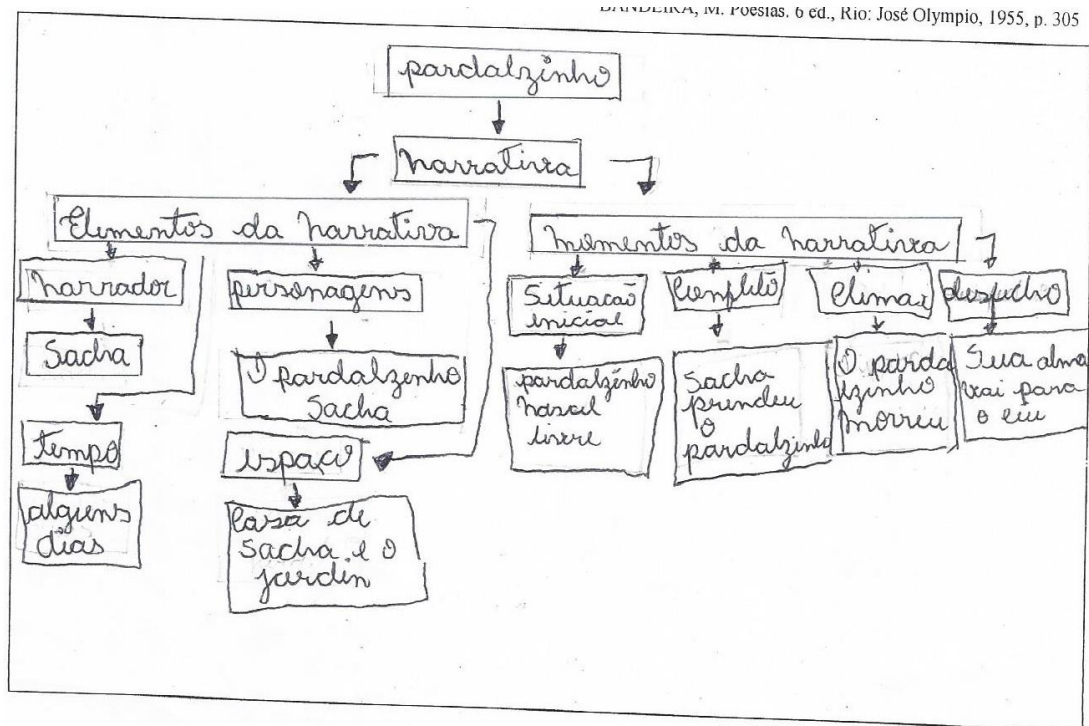 BANDEIRA, M. Poesias. 6 ed., Rio: José Olympio, 1955, p. 305
pardalzinho
narrativa
Elementos da narrativa
narrador
Sacha
tempo
alguns
dias
personagens
O pardalzenho
Sacha
espaço
Casa de
Sacha e o
jardin
momentos da narrativa
Situacão
inicial
pardalzinho
nasceu
livre
Conflito
Sacha
prendeu
o
pardalzinho
Climax
O parda
lzinho
morreu
despecho
Sua alma
vai para
o ceu